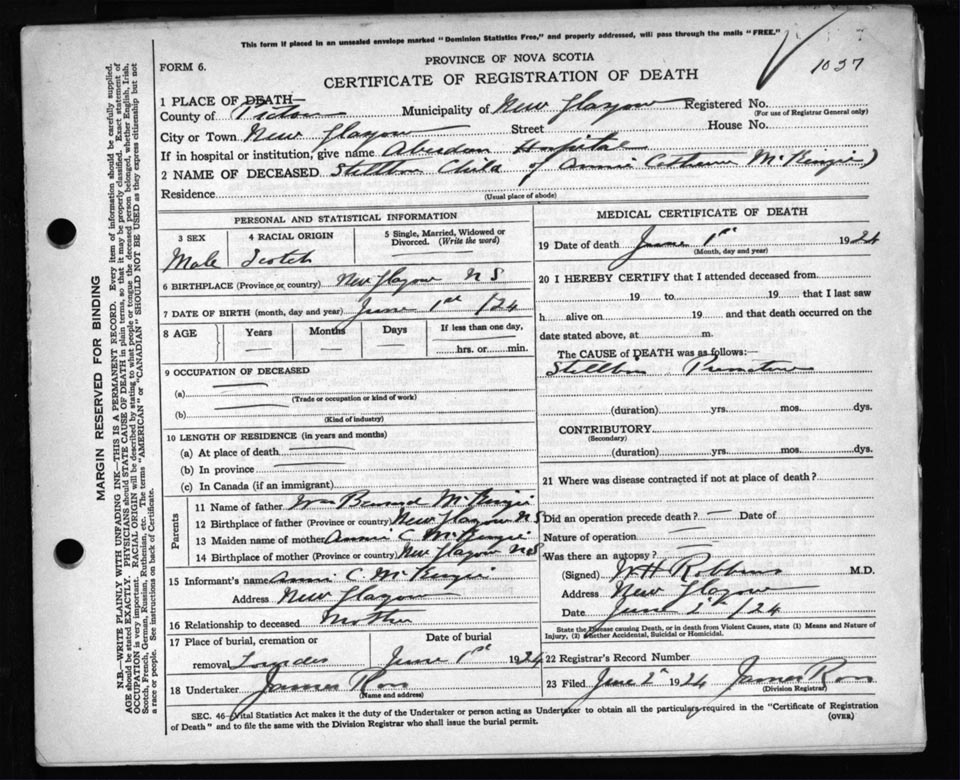 This form if placed in an unsealed envelope marked "Dominion Statistics Free," and properly addressed, will pass through the mails "FREE."
1037
FORM 6.
PROVINCE OF NOVA SCOTIA
CERTIFICATE OF REGISTRATION OF DEATH
1 PLACE OF DEATH—
County of Pictou Municipality of New Glasgow Registered No.
(For use of Registrar General only)
City or Town New Glasgow Street House No.
If in hospital or institution, give name Aberdeen Hospital
2 NAME OF DECEASED Stillborn Child of Annie Catherine McKenzie)
Residence
(Usual place of abode)
PERSONAL AND STATISTICAL INFORMATION
3 SEX 4 RACIAL ORIGIN 5 Single, Married, Widowed or Divorced. (Write the word)
Male Scotch
6 BIRTHPLACE (Province or country) New Glasgow N S
7 DATE OF BIRTH (month, day and year) June 1st /24
8 AGE Years Months Days If less than one day,
hrs. or min.
9 OCCUPATION OF DECEASED
(a)
(Trade or occupation or kind of work)
(b)
(Kind of industry)
10 LENGTH OF RESIDENCE (in years and months)
(a) At place of death
(b) In province
(c) In Canada (if an immigrant)
Parents
11 Name of father Wm Bernard McKenzie
12 Birthplace of father (Province or country) New Glasgow N S
13 Maiden name of mother Annie C McKenzie
14 Birthplace of mother (Province or country) New Glasgow N S
15 Informant's name Annie C McKenzie
Address New Glasgow
16 Relationship to deceased Mother
17 Place of burial, cremation or removal Date of burial
June 1st 1924
18 Undertaker James Ross
(Name and address)
MEDICAL CERTIFICATE OF DEATH
19 Date of death June 1st 1924
(Month, day and year)
20 I HEREBY CERTIFY that I attended deceased from
19 to 19 that I last saw
h alive on 19 and that death occurred on the
date stated above, at m.
The CAUSE of DEATH was as follows:—
Stillborn Premature
(duration) yrs. mos. dys.
CONTRIBUTORY
(Secondary)
(duration) yrs. mos. dys.
21 Where was disease contracted if not at place of death?
Did an operation precede death? — Date of
Nature of operation
Was there an autopsy?
(Signed) W H Robbins M.D.
Address New Glasgow
Date June 2d /24
State the Disease causing Death, or in death from Violent Causes, state (1) Means and Nature of Injury, (2) whether Accidental, Suicidal or Homicidal.
22 Registrar's Record Number
23 Filed June 2d 1924 James Ross
(Division Registrar)
SEC. 46—Vital Statistics Act makes it the duty of the Undertaker or person acting as Undertaker to obtain all the particulars required in the "Certificate of Registration
of Death" and to file the same with the Division Registrar who shall issue the burial permit.
(OVER)
MARGIN RESERVED FOR BINDING
N.B.—WRITE PLAINLY WITH UNFADING INK—THIS IS A PERMANENT RECORD. Every item of information should be carefully supplied.
AGE should be stated EXACTLY. PHYSICIANS should STATE CAUSE OF DEATH in plain terms, so that it may be properly classified. Exact statement of
OCCUPATION is very important. RACIAL ORIGIN will be described by stating to what people or tongue the deceased person belonged, whether English, Irish,
Scotch, French, German, Russian, Ruthenian, etc. The terms "AMERICAN" or "CANADIAN" SHOULD NOT BE USED as they express citizenship but not
a race or people. See instructions on back of Certificate.